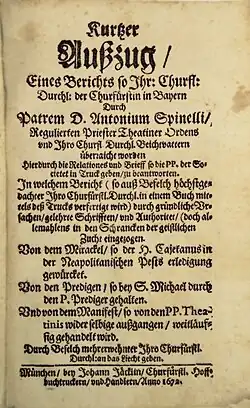 Kurtzer
Außzug/
Eines Berichts so Ihr: Churfl:
Durchl: der Churfürstin in Bayern
Durch
Patrem D. Antonium Spinelli/
Regulierten Priester Theatiner Ordens
und Ihro Churfl. Durchl. Beichtvattern
überraicht worden
Hierdurch die Relationes und Brieff so die PP. der So-
cietet in Truck geben/ zu beantworten.
In welchem Bericht (so auß Befelch höchstge-
dachter Ihro Churfürstl. Durchl. in einem Buch mit-
tels deß Trucks verfertigt wird) durch gründliche Vr-
sachen/ gelehrte Schrifften/ und Authoritet/ (doch al-
lemahlens in den Schrancken der geistlichen
Zucht eingezogen.
Von dem Mirackel/ so der H. Cajetanus in
der Neapolitanischen Pests erledigung
gewürcket.
Von den Predigen/ so bey S. Michael durch
den P. Prediger gehalten.
Vnd von dem Manifest/ so von den PP. Thea-
tinis wider selbige außgangen/ weitläuf-
fig gehandelt wird.
Durch Befelch mehrerwehnter Ihro Churfürstl.
Durchl: an das Liecht geben.
München/ bey Johann Jäcklin/ Churfürstl. Hoff-
buchtruckern/ und Handlern/ Anno 1672.